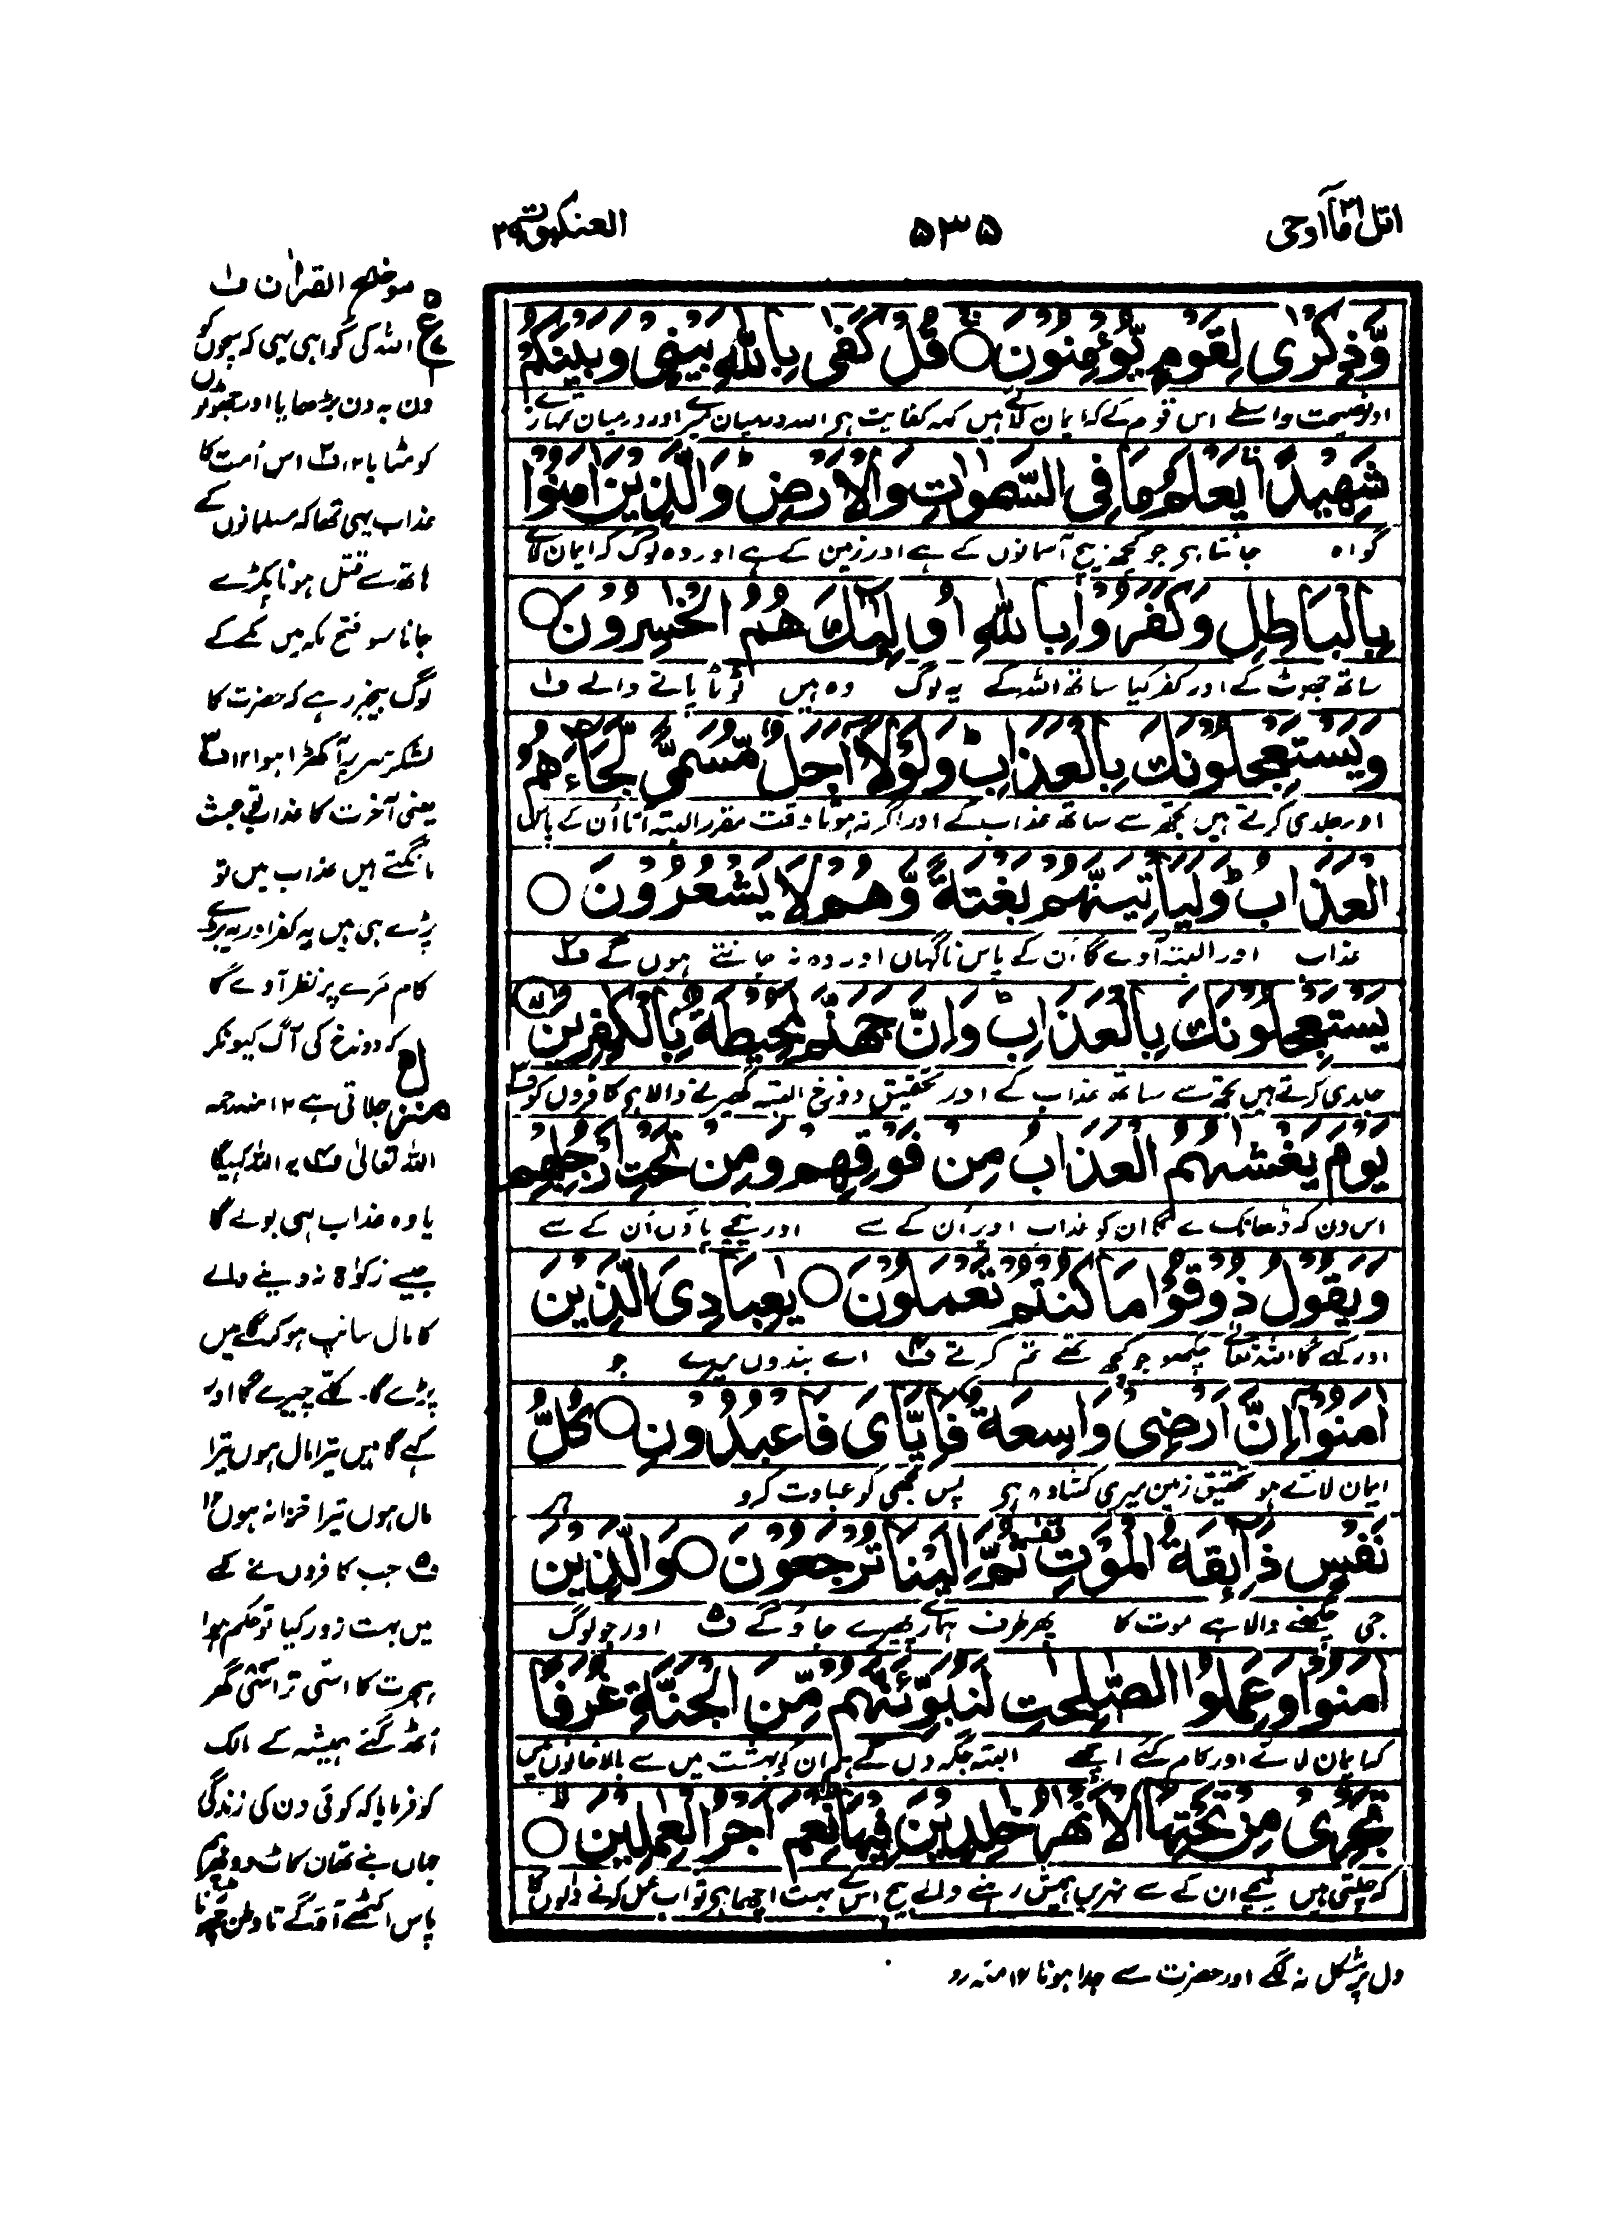 اتل ما اوحی ۲۱
۵۳۵
العنکبوت ۲۹
وَّذِكْرٰى لِقَوْمٍ يُّؤْمِنُوْنَ ○ قُلْ كَفٰى بِاللّٰهِ بَيْنِىْ وَبَيْنَكُمْ
اور نصیحت واسطے اس قوم کے کہ ایمان لاتے ہیں کہہ کفایت ہی اللہ درمیان میرے اور درمیان تمہارے
شَهِيْدًا ۚ يَعْلَمُ مَا فِى السَّمٰوٰتِ وَالْاَرْضِ ؕ وَالَّذِيْنَ اٰمَنُوْا
گواہ جانتا ہی جو کچھ بیچ آسمانوں کے ہے اور زمین کے ہے اور وہ لوگ کہ ایمان لائے
بِالْبَاطِلِ وَكَفَرُوْا بِاللّٰهِ ۙ اُولٰٓئِكَ هُمُ الْخٰسِرُوْنَ ○
ساتھ جھوٹ کے اور کفر کیا ساتھ اللہ کے یہ لوگ وہ ہیں ٹوٹا پانے والے ف۱
وَيَسْتَعْجِلُوْنَكَ بِالْعَذَابِ ؕ وَلَوْلَاۤ اَجَلٌ مُّسَمًّى لَّجَآءَهُمُ
اور جلدی کرتے ہیں تجھ سے ساتھ عذاب کے اور اگر نہ ہوتا وقت مقرر البتہ آتا اُن کے پاس
الْعَذَابُ ؕ وَلَيَاْتِيَنَّهُمْ بَغْتَةً وَّهُمْ لَا يَشْعُرُوْنَ ○
عذاب اور البتہ آوے گا اُن کے پاس ناگہاں اور وہ نہ جانتے ہوں گے ف۲
يَسْتَعْجِلُوْنَكَ بِالْعَذَابِ ؕ وَاِنَّ جَهَنَّمَ لَمُحِيْطَةٌ ۢ بِالْكٰفِرِيْنَ ○
جلدی کرتے ہیں تجھ سے ساتھ عذاب کے اور تحقیق دوزخ البتہ گھیرنے والا ہی کافروں کو ف۳
يَوْمَ يَغْشٰىهُمُ الْعَذَابُ مِنْ فَوْقِهِمْ وَمِنْ تَحْتِ اَرْجُلِهِمْ
اس دن کہ ڈھانک لے گا ان کو عذاب اوپر اُن کے سے اور نیچے پاؤں اُن کے سے
وَيَقُوْلُ ذُوْقُوْا مَا كُنْتُمْ تَعْمَلُوْنَ ○ يٰعِبَادِىَ الَّذِيْنَ
اور کہے گا اللہ تعالٰے چکھو جو کچھ تھے تم کرتے ف۴ اے بندوں میرے جو
اٰمَنُوْۤا اِنَّ اَرْضِىْ وَاسِعَةٌ فَاِيَّاىَ فَاعْبُدُوْنِ ○ كُلُّ
ایمان لائے ہو تحقیق زمین میری کشادہ ہی پس مجھی کو عبادت کرو ہر
نَفْسٍ ذَآئِقَةُ الْمَوْتِ ثُمَّ اِلَيْنَا تُرْجَعُوْنَ ○ وَالَّذِيْنَ
جی چکھنے والا ہے موت کا پھر طرف ہمارے پھیرے جاؤ گے ف۵ اور جو لوگ
اٰمَنُوْا وَعَمِلُوا الصّٰلِحٰتِ لَنُبَوِّئَنَّهُمْ مِّنَ الْجَنَّةِ غُرَفًا
کہ ایمان لائے اور کام کئے اچھے البتہ جگہ دیں گے ہم ان کو بہشت میں سے بالا خانوں میں
تَجْرِىْ مِنْ تَحْتِهَا الْاَنْهٰرُ خٰلِدِيْنَ فِيْهَا ؕ نِعْمَ اَجْرُ الْعٰمِلِيْنَ ○
کہ چلتی ہیں نیچے ان کے سے نہریں ہمیش رہنے والے بیچ اس کے بہت اچھا ہی ثواب عمل کرنے والوں کا
موضح القرآن ف۱
اللہ کی گواہی یہی کہ سچوں کو
دن بہ دن بڑھایا اور جھوٹوں
کو مٹایا ۱۲ ف۲ اس اُمت کا
عذاب یہی تھا کہ مسلمانوں کے
ہاتھ سے قتل ہونا پکڑے
جانا سو فتح مکہ میں مکے کے
لوگ بیخبر رہے کہ حضرت کا
لشکر سر پہ آ کھڑا ہوا ۱۲ ف۳
یعنی آخرت کا عذاب عبث
مانگتے ہیں عذاب میں تو
پڑے ہی ہیں یہ کفر اور یہ برے
کام مرے پر نظر آوے گا
کہ دوزخ کی آگ کیونکر
جلاتی ہے ۱۲ منہ رحمہ
اللہ تعالیٰ ف۴ یہ اللہ کہیگا
یا وہ عذاب ہی بولے گا
جیسے زکوٰة نہ دینے والے
کا مال سانپ ہو کر گلے میں
پڑے گا۔ کلّے چیرے گا اور
کہے گا میں تیرا مال ہوں تیرا
مال ہوں تیرا خزانہ ہوں ۱۲
ف۵ جب کافروں نے مکے
میں بہت زور کیا تو حکم ہوا
ہجرت کا اسّی تراسّی گھر
اُٹھ گئے ہمیشہ کے مالک
کو فرمایا کہ کوئی دن کی زندگی
جہاں بنے تھاں کاٹ دو پھر
پاس اکٹھے آؤگے تا وطن
دل پر مشکل نہ لگے اور حضرت سے جدا ہونا ۱۲ منہ رح